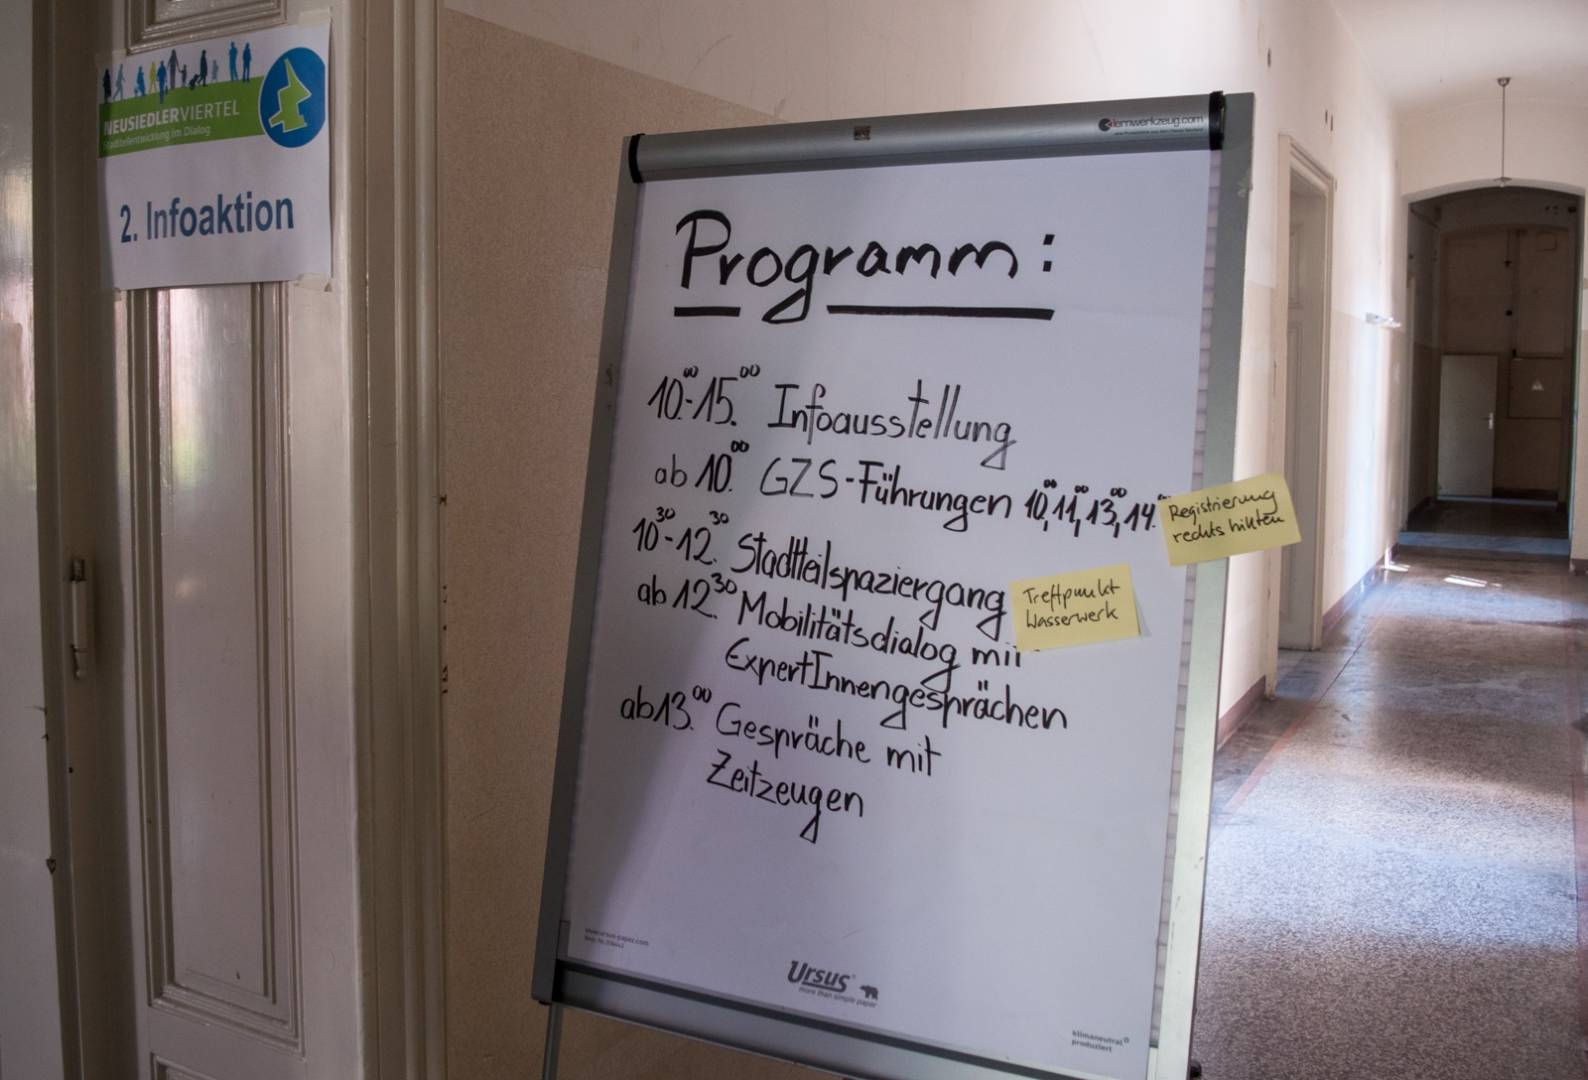 NEUSIEDLERVIERTEL
Stadtteilentwicklung im Dialog
2. Infoaktion
lernwerkzeug.com
Programm:
10.00-15.00 Infoausstellung
ab 10.00 GZS-Führungen 10.00, 11.00, 13.00, 14.00
Registrierung
rechts hinten
10.30-12.30 Stadtteilspaziergang
Treffpunkt
Wasserwerk
ab 12.30 Mobilitätsdialog mit
ExpertInnengesprächen
ab 13.00 Gespräche mit
Zeitzeugen
www.ursus-paper.com
Ursus
more than simple paper
klimaneutral
produziert